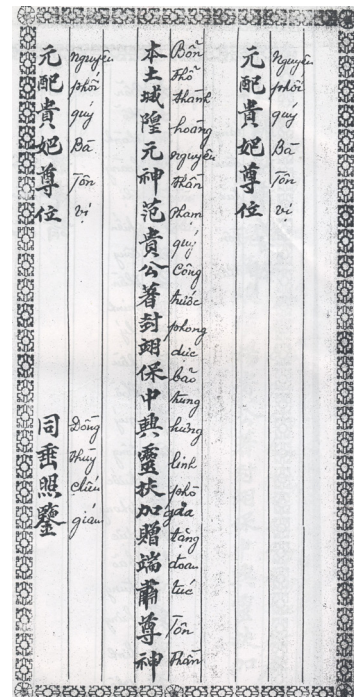 元配貴妑尊位
Nguyên phối quý Bà Tôn vị
本土城隍元神范貴公著封翊保中興靈扶加贈端肅尊神
Bổn Thổ thành hoàng nguyên thần Phạm quý Công trước phong dực bảo trung hưng linh phò gia tặng đoan túc Tôn Thần
元配貴妑尊位 同垂照鑒
Nguyên phối quý Bà Tôn vị Đồng thùy chiếu giám